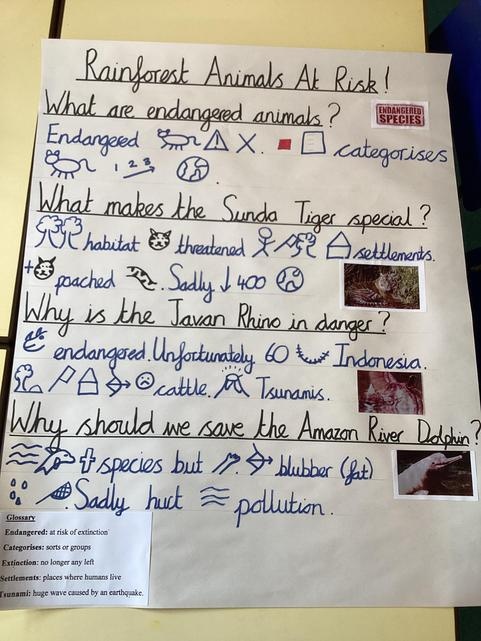 Rainforest Animals At Risk!
What are endangered animals?
ENDANGERED
SPECIES
Endangered categorises
1 2 3
What makes the Sunda Tiger special?
habitat threatened settlements.
+ poached . Sadly ↓ 400
Why is the Javan Rhino in danger?
endangered. Unfortunately 60 Indonesia.
cattle. Tsunamis.
Why should we save the Amazon River Dolphin?
species but blubber (fat)
. Sadly hurt pollution.
Glossary
Endangered: at risk of extinction
Categorises: sorts or groups
Extinction: no longer any left
Settlements: places where humans live
Tsunami: huge wave caused by an earthquake.